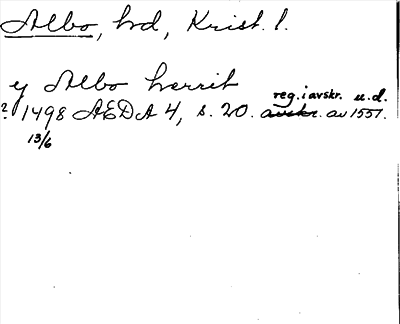 Albo, hd, Krist. l.
y Albo herrit
? 1498 AEDA 4, s. 20. avskr. reg. i avskr. u. d. av 1557.
13/6